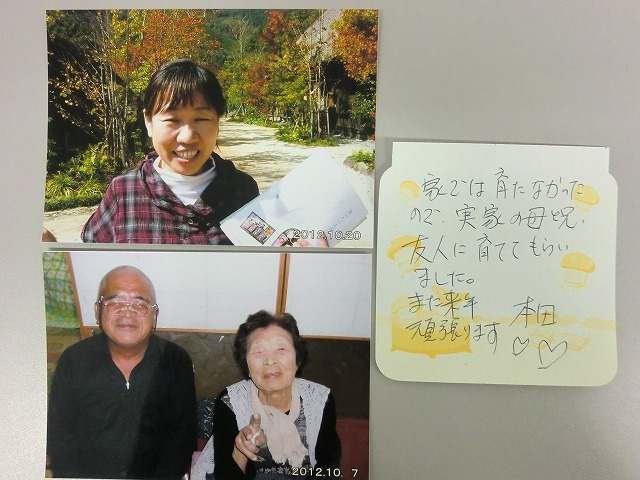 2012.10.20
2012.10. 7
家では育たなかった
ので、実家の母と兄、
友人に育ててもらい
ました。
また来年
頑張ります
本田